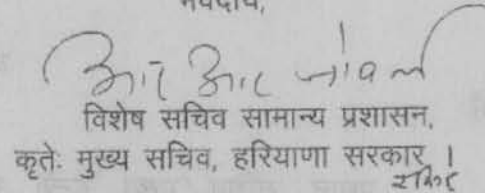 भवदीय,
आर आर जोवल
विशेष सचिव सामान्य प्रशासन,
कृतेः मुख्य सचिव, हरियाणा सरकार ।